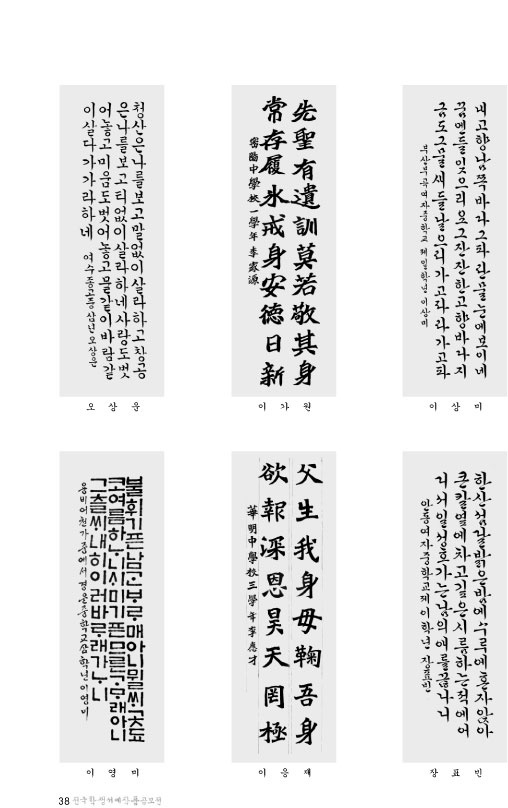 청산은나를보고말없이살라하고창공
은나를보고티없이살라하네사랑도벗
어놓고미움도벗어놓고물같이바람같
이살다가가라하네
先聖有遺訓莫若敬其身
常存履氷戒身安德日新
中學校一學年 李家源
내고향남쪽바다그파란물눈에보이네
꿈엔들잊으리오그잔잔한고향바다지
금도그물새들날으리가고파라가고파
여자중학교제일학년이상미
오 상
이 가 원
이 상 미
불휘기픈남ᄀᆞᆫᄇᆞᄅᆞ매아니뮐ᄊᆡ곶됴
코여름하ᄂᆞ니ᄉᆡ미기픈므른ᄀᆞᄆᆞ래아니
그츨ᄊᆡ내히이러바ᄅᆞ래가ᄂᆞ니
용비어천가중에서 경은중학교삼학년이영미
父生我身母鞠吾身
欲報深恩昊天罔極
華明中學校三學年李應才
한산섬달밝은밤에수루에혼자앉아
큰칼옆에차고깊은시름하는적에어
디서일성호가는남의애를끊나니
여자중학교제이학년 장표빈
이 영 미
이 응 재
장 표 빈
38 전국학생서예작품공모전